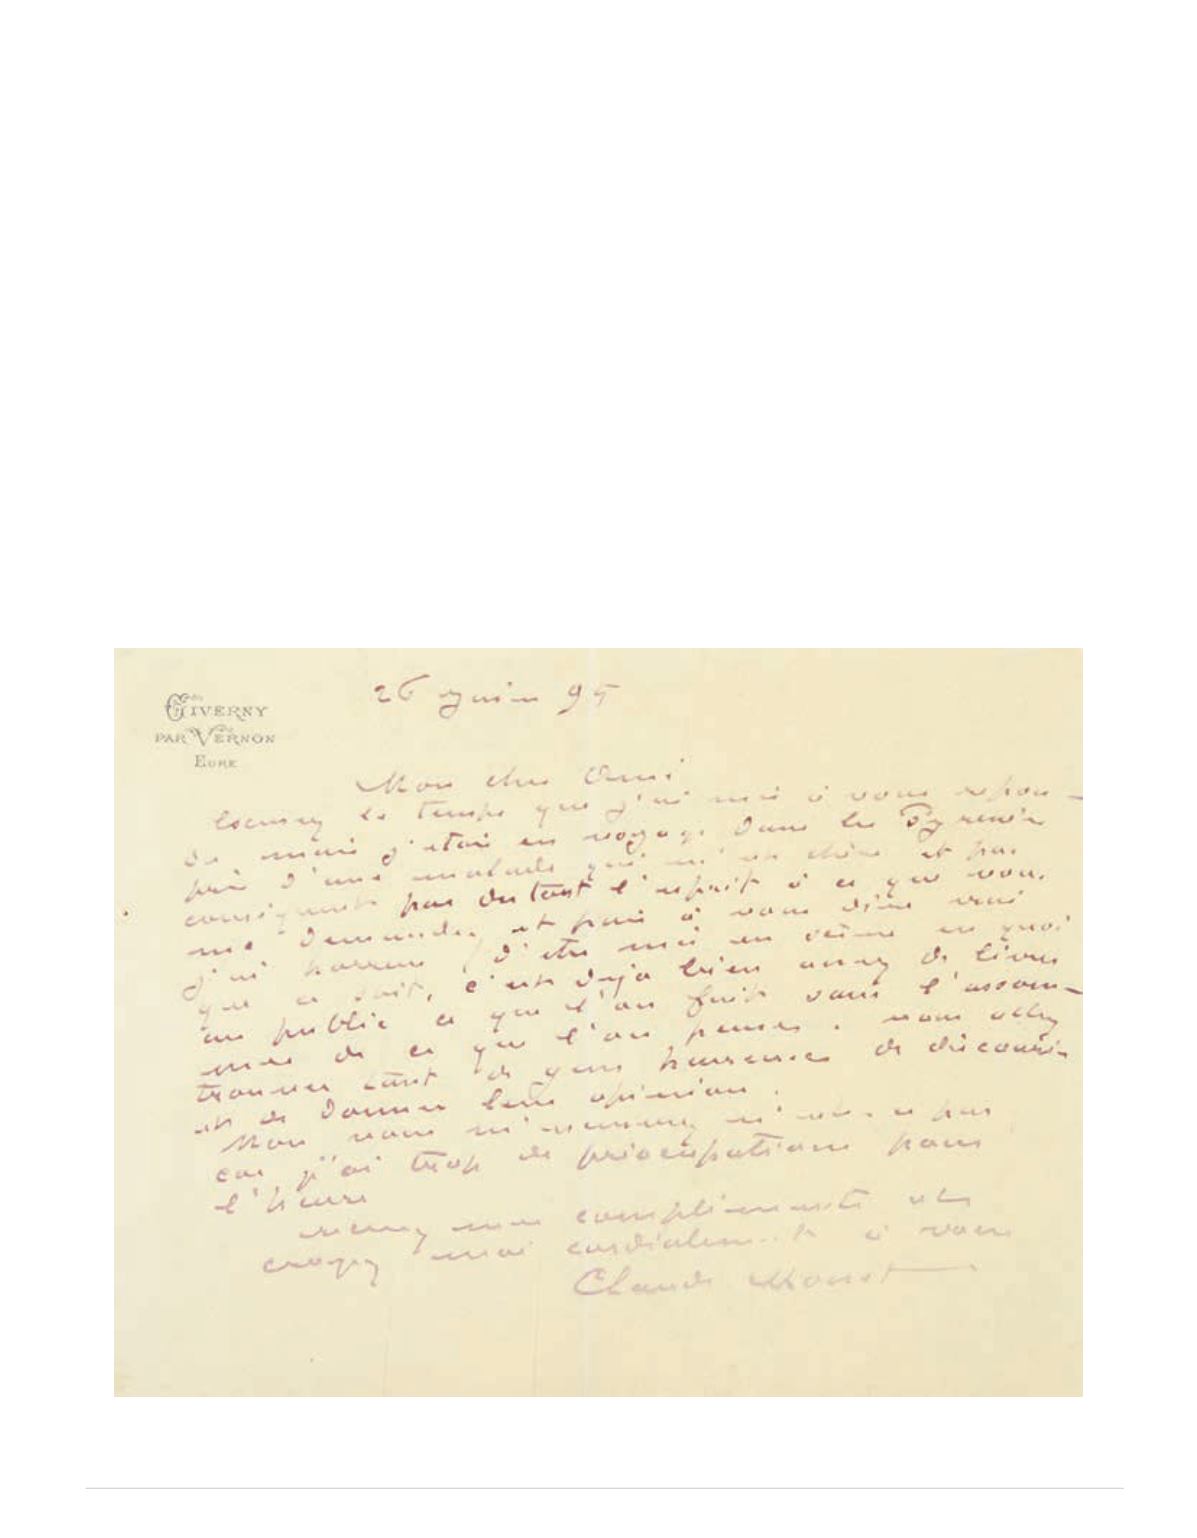 GIVERNY
PAR VERNON
EURE
26 juin 95
Mon cher Ami
Excusez le temps que j'ai mis à vous répon-
dre mais j'étais en voyage dans les Pyrénées
près d'une malade qui m'est chère et par
conséquent pas du tout l'esprit à ce que vous
me demandez, et puis à vous dire vrai
j'ai horreur d'être mis en scène en quoi
que ce soit, c'est déjà bien assez de livrer
au public ce que l'on fait sans l'assom-
mer de ce que l'on pense. vous allez
trouver tant de gens heureux de discourir
et de donner leur opinion.
Mon vous m'excusez n'est-ce pas
car j'ai trop de préoccupations pour
l'heure
mes compliments et
croyez moi cordialement à vous
Claude Monet